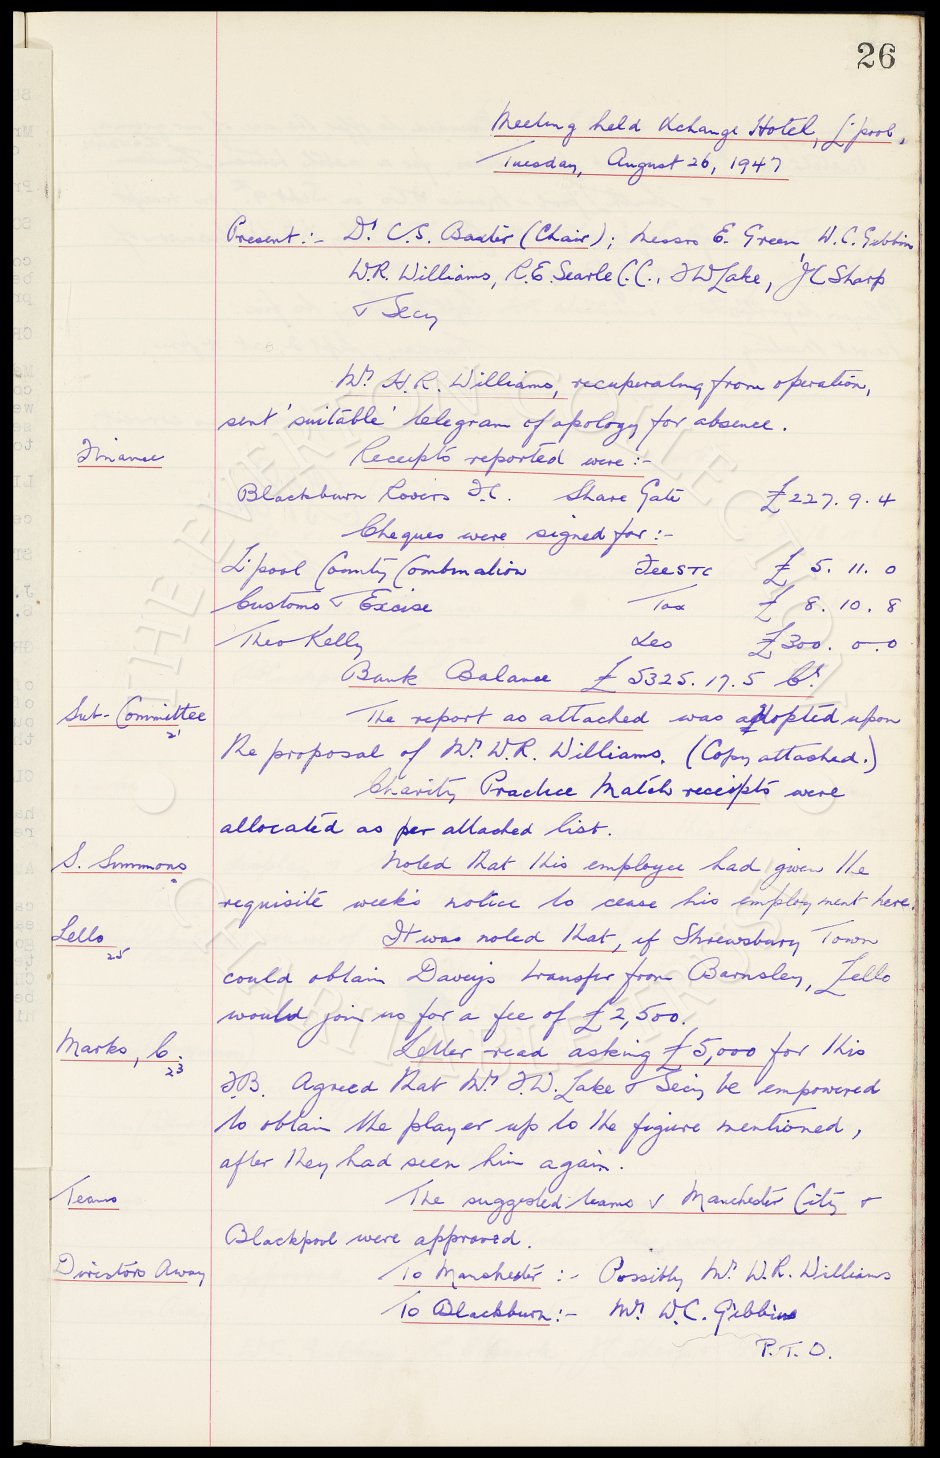 26
Meeting held Xchange Hotel, L'pool,
Tuesday, August 26, 1947
Present :- Dr. C.S. Baxter (Chair); Messrs E. Green, W.C. Gibbins
W.R. Williams, R.E. Searle C.C., F W Lake, J C Sharp
& Secy
Mr. H.R. Williams, recuperating from operation,
sent 'suitable' telegram of apology for absence.
Finance
Receipts reported were :-
Blackburn Rovers F.C. Share Gate £227. 9. 4
Cheques were signed for :-
L'pool County Combination Fees etc £ 5. 11. 0
Customs & Excise Tax £ 8. 10. 8
Theo Kelly £300. 0. 0
Bank Balance £5325. 17. 5 Cr.
Sub-Committee
21
The report as attached was adopted upon
the proposal of Mr. W.R. Williams. (Copy attached.)
Charity Practice Match receipts were
allocated as per attached list.
S. Simmons
Noted that this employee had given the
requisite week's notice to cease his employment here.
Lello
25
It was noted that, if Shrewsbury Town
could obtain Davey's transfer from Barnsley, Lello
would join us for a fee of £2,500.
Marks, C.
23
Letter read asking £5,000 for this
F.B. Agreed that Mr. F.W. Lake & Secy be empowered
to obtain the player up to the figure mentioned,
after they had seen him again.
Teams
The suggested teams v Manchester City &
Blackpool were approved.
Directors Away
To Manchester :- Possibly Mr. W.R. Williams
To Blackburn :- Mr. W.C. Gibbins
P.T.O.
© THE EVERTON COLLECTION
CHARITABLE TRUST